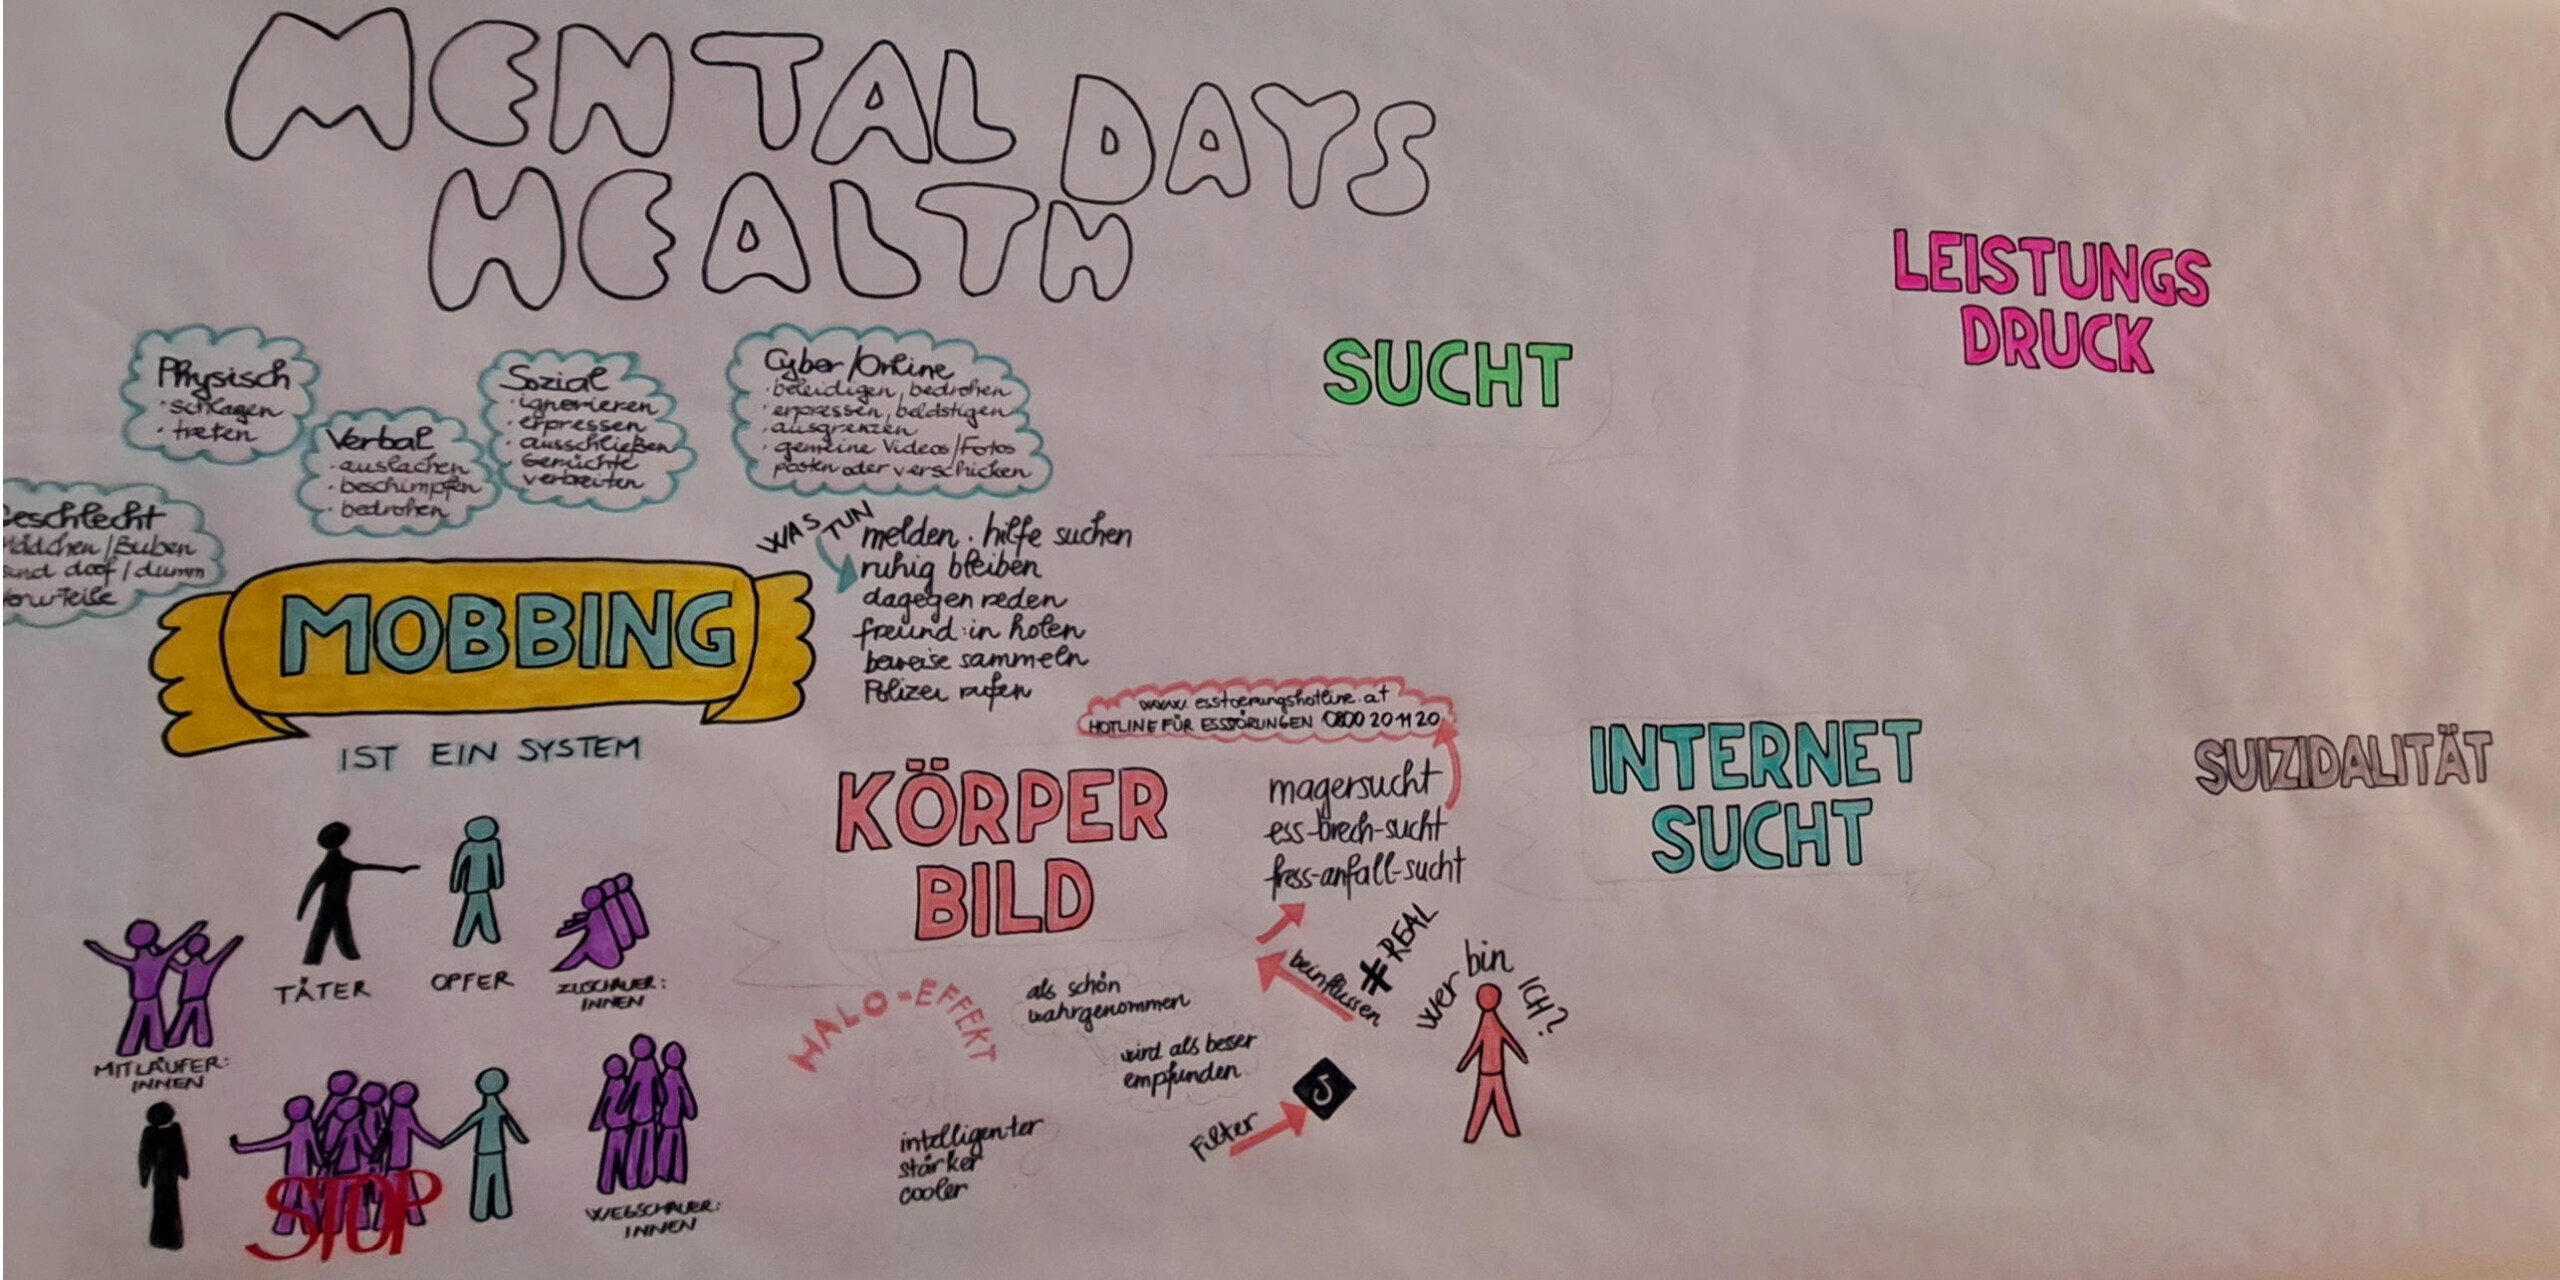 MENTAL DAYS
HEALTH
Physisch
· schlagen
· treten
Verbal
· auslachen
· beschimpfen
· bedrohen
Sozial
· ignorieren
· erpressen
· ausschließen
· Gerüchte
verbreiten
Cyber/Online
· beleidigen, bedrohen
· erpressen, belästigen
· ausgrenzen
· gemeine Videos/Fotos
posten oder verschicken
eschlecht
Mädchen/Buben
sind doof/dumm
Vorurteile
MOBBING
IST EIN SYSTEM
WAS TUN
melden · hilfe suchen
ruhig bleiben
dagegen reden
freund:in holen
beweise sammeln
Polizei rufen
TÄTER
OPFER
ZUSCHAUER:
INNEN
MITLÄUFER:
INNEN
STOP
WEGSCHAUER:
INNEN
KÖRPER
BILD
www.esstoerungshotline.at
HOTLINE FÜR ESSSÖRUNGEN 0800 20 11 20
magersucht
ess-brech-sucht
fress-anfall-sucht
HALO-EFFEKT
als schön
wahrgenommen
wird als besser
empfunden
intelligenter
stärker
cooler
Filter
beinflussen
≠ REAL
wer bin ICH?
SUCHT
LEISTUNGS
DRUCK
INTERNET
SUCHT
SUIZIDALITÄT